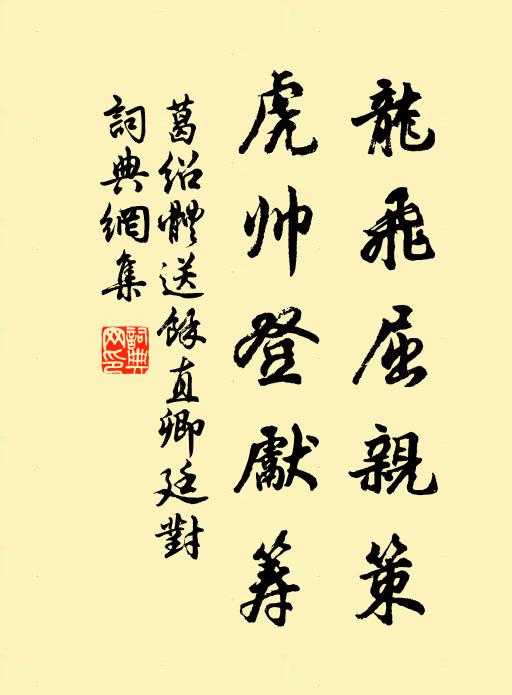 龍飛屈親策
虎帅登獻筭
葛紹體送餘直卿廷對
詞典網集
詞典网印